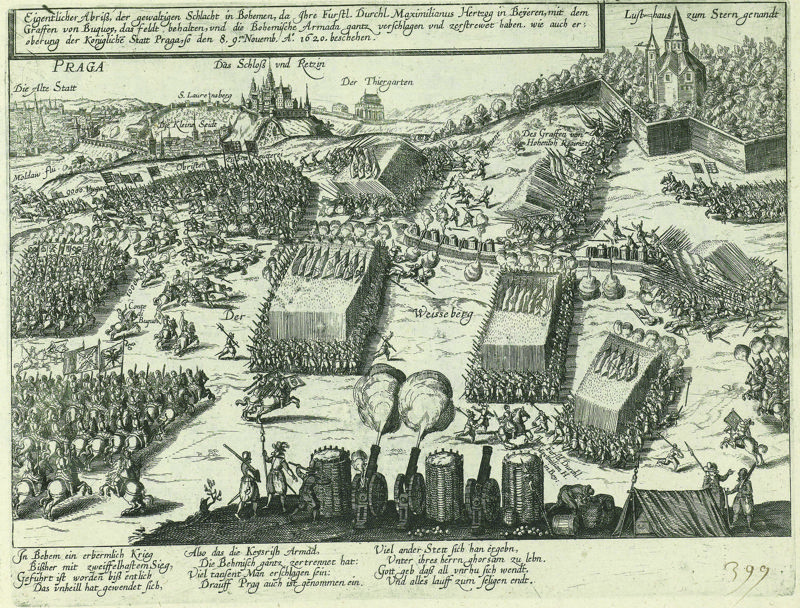 Eigentlicher Abriß, der gewaltigen Schlacht in Bohemen, da Ihre Fürstl. Durchl. Maximilianus Hertzog in Beÿeren, mit dem
Graffen von Buquoy, das feldt behalten, und die Bohemische Armada gantz verschlagen und zerstrewet haben. wie auch er,
oberung der Königliche Statt Praga, so den 8. 9. Novemb. A. 1620. beschehen.
Lusthaus zum Stern genandt
PRAGA
Das Schloß und Retzin
Der Thiergarten
Die Alte Statt
S. Laurentzberg
Die Kleine Seidt
Des Graffen von
Hohenloh
Moldaw flu.
Conte
Buquoy
Der Weisseberg
In Behem ein erbermlich Krieg
Bißher mit zweiffelhafftem Sieg,
Geführt ist worden biß entlich
Das vnheill hat gewendet sich,
Also das die Keysrisch Armad,
Die Behmisch gantz zertrennet hat:
Viel tausent Man erschlagen sein:
Drauff Prag auch ist genommen ein.
Viel ander Stett sich han ergebn,
Unter ihres herrn ghorsam zu lebn.
Gott geb daß all vnrhu sich wendt,
Und alles lauff zum seligen endt.
399